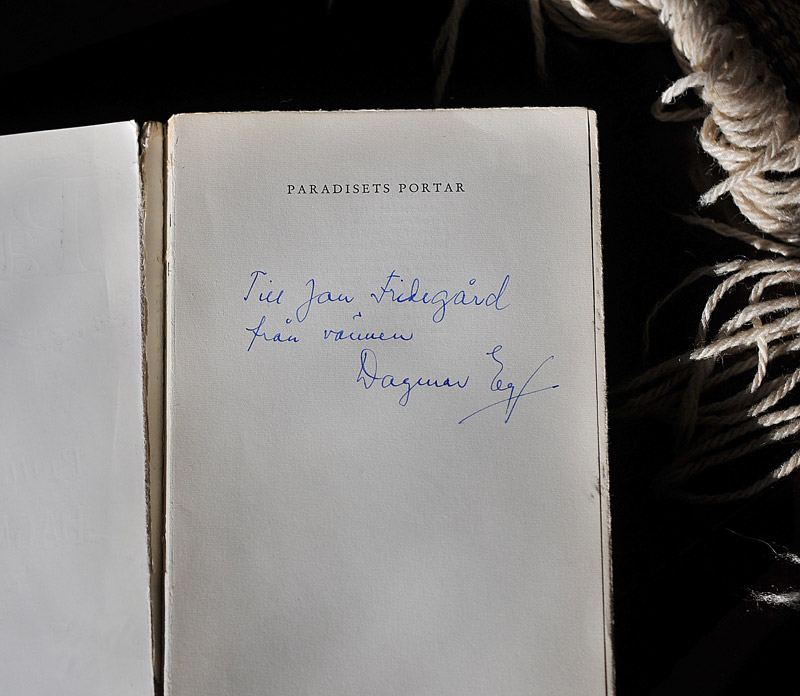 PARADISETS PORTAR
Till Jan Fridegård
från vännen
Dagmar Edqvist